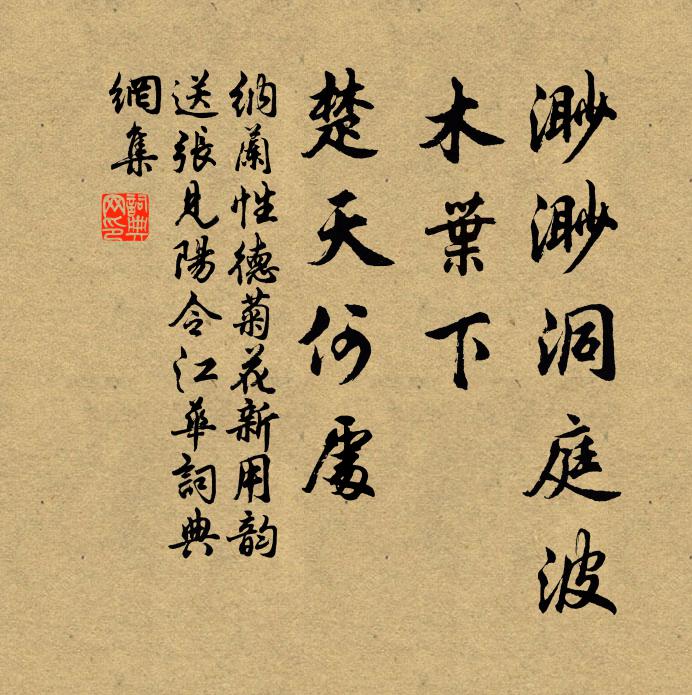 渺渺洞庭波
木葉下
楚天何處
納蘭性德菊花新用韵
送張見陽令江華詞典
網集
詞典
网印